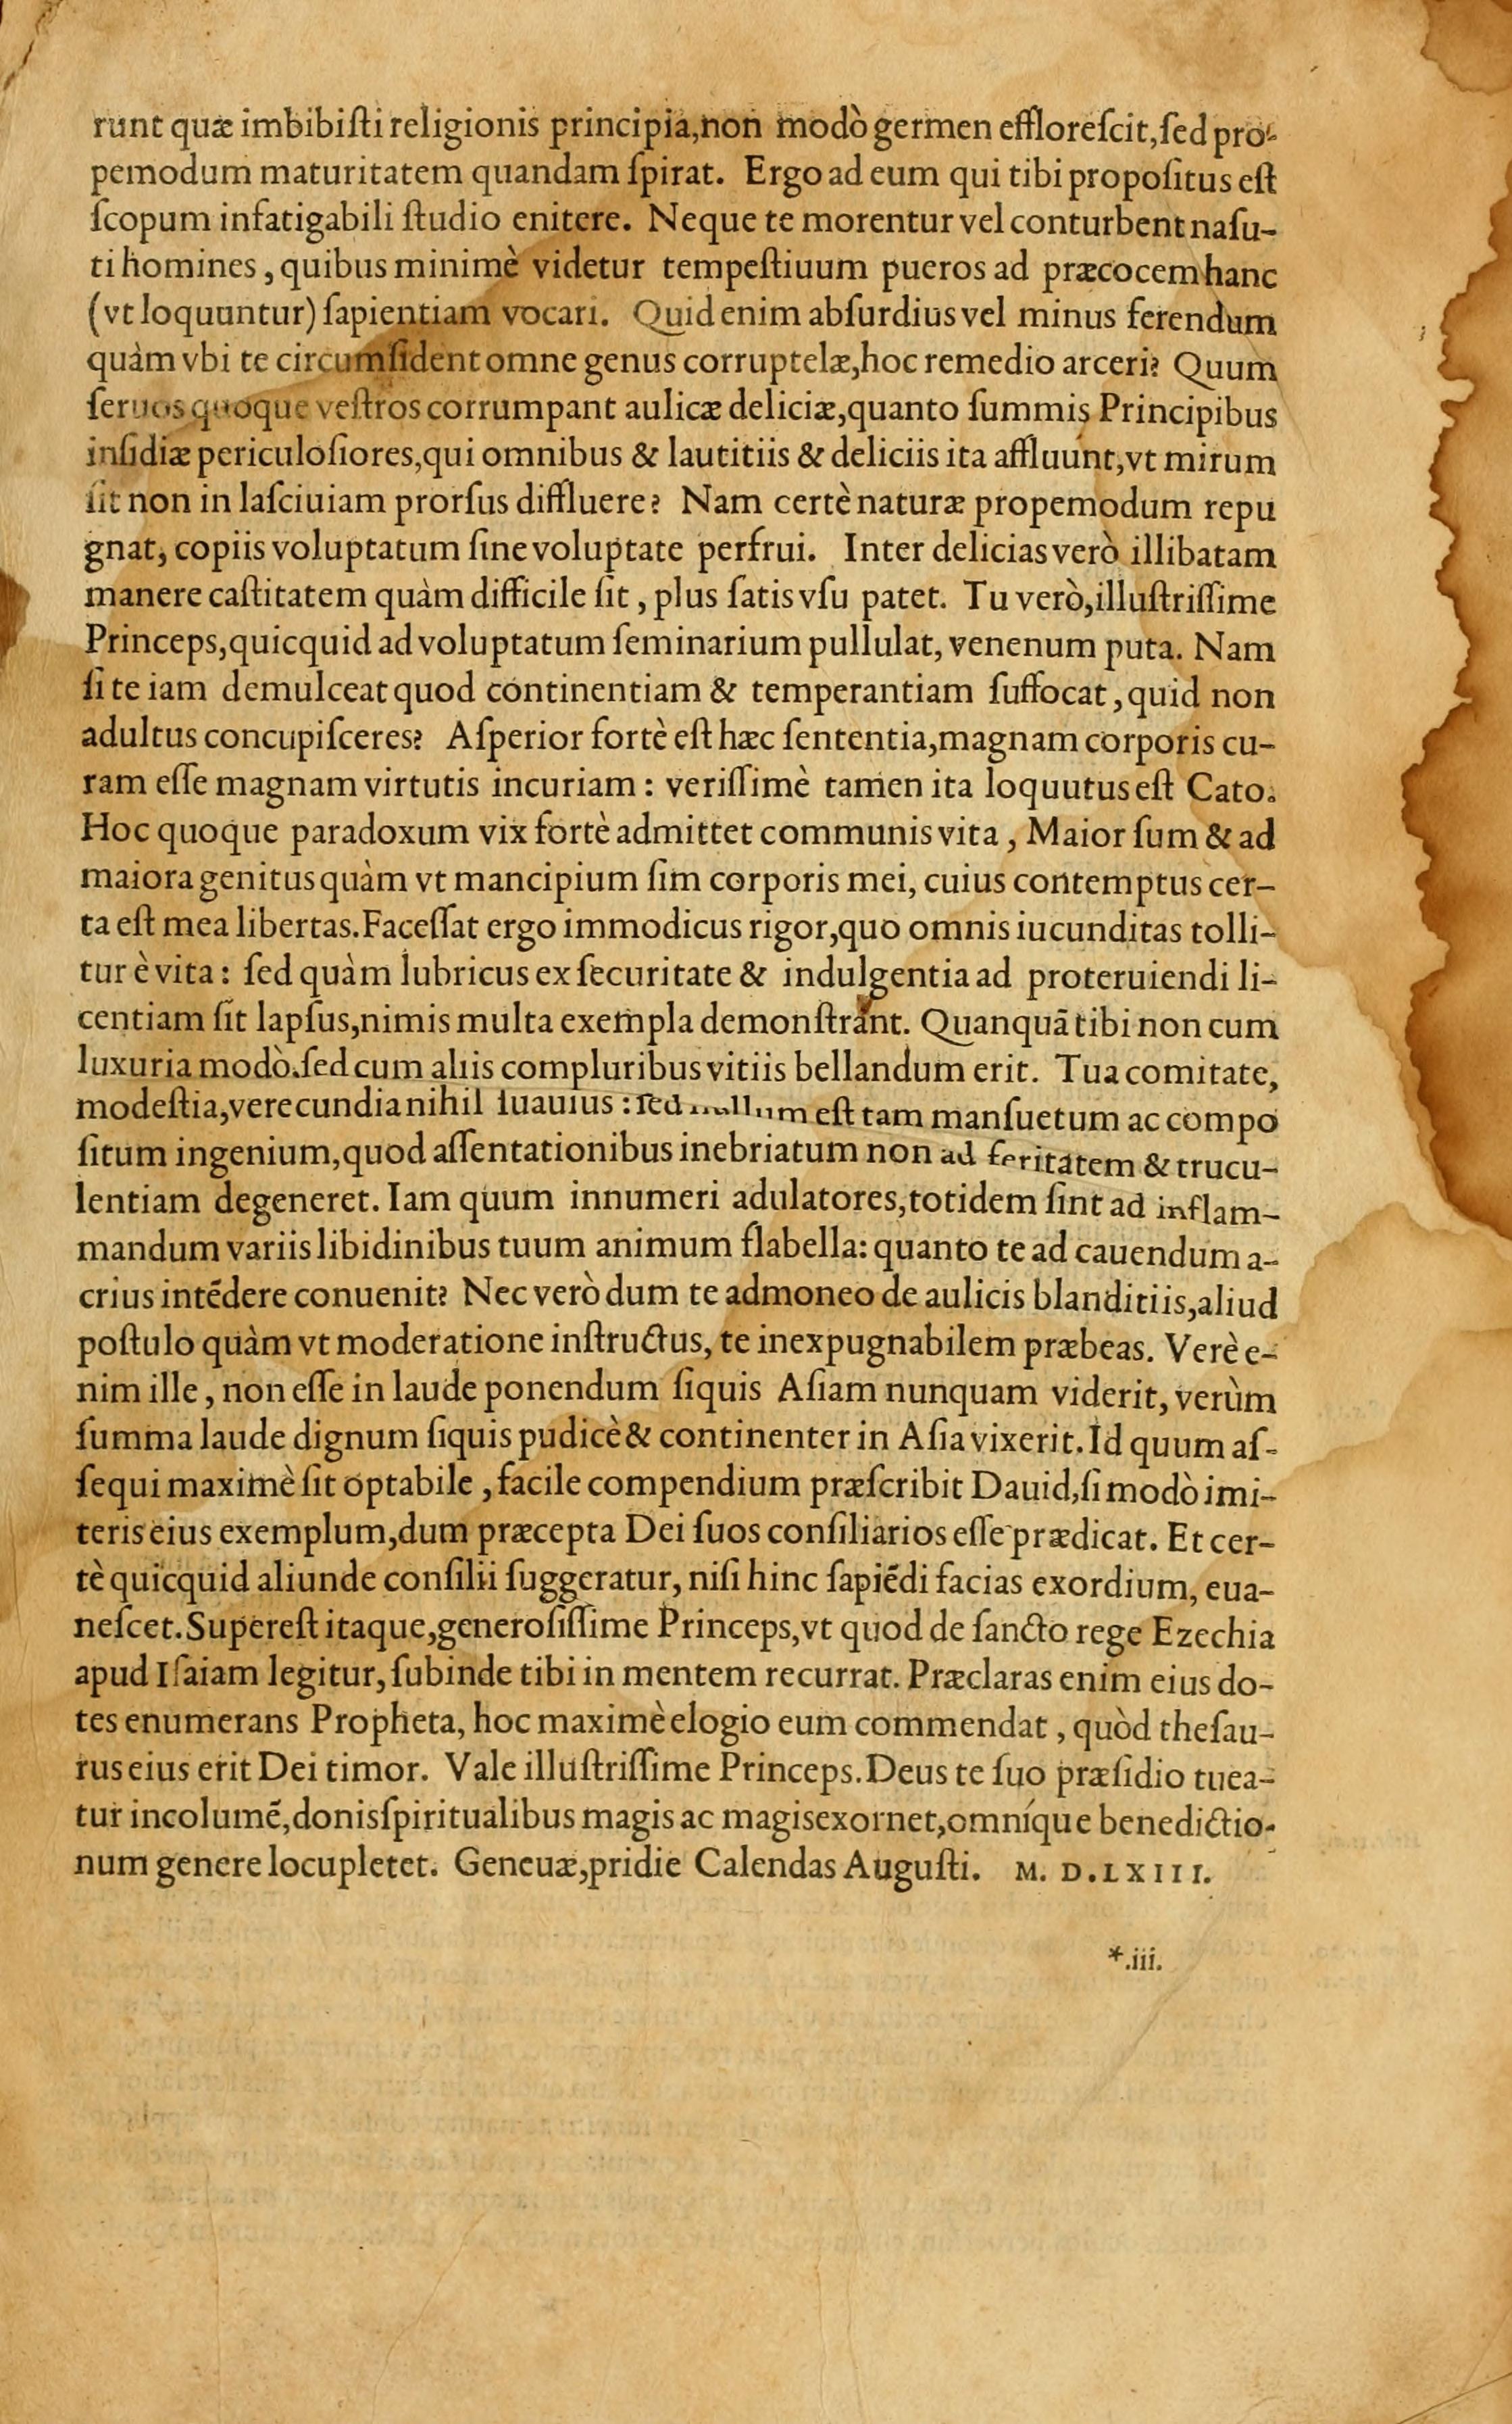 runt quæ imbibiſti religionis principia,non modò germen effloreſcit,ſed pro-
pemodum maturitatem quandam ſpirat. Ergo ad eum qui tibi propoſitus eſt
ſcopum infatigabili ſtudio enitere. Neque te morentur vel conturbent naſu-
ti homines, quibus minimè videtur tempeſtiuum pueros ad præcocem hanc
(vt loquuntur) ſapientiam vocari. Quid enim abſurdius vel minus ferendum
quàm vbi te circumſident omne genus corruptelæ,hoc remedio arceri? Quum
ſeruos quoque veſtros corrumpant aulicæ deliciæ,quanto ſummis Principibus
inſidiæ periculoſiores,qui omnibus & lautitiis & deliciis ita affluunt,vt mirum
ſit non in laſciuiam prorſus diffluere? Nam certè naturæ propemodum repu
gnat, copiis voluptatum ſine voluptate perfrui. Inter delicias verò illibatam
manere caſtitatem quàm difficile ſit, plus ſatis vſu patet. Tu verò,illuſtriſſime
Princeps,quicquid ad voluptatum ſeminarium pullulat, venenum puta. Nam
ſi te iam demulceat quod continentiam & temperantiam ſuffocat, quid non
adultus concupiſceres? Aſperior fortè eſt hæc ſententia,magnam corporis cu-
ram eſſe magnam virtutis incuriam: veriſſimè tamen ita loquutus eſt Cato.
Hoc quoque paradoxum vix fortè admittet communis vita, Maior ſum & ad
maiora genitus quàm vt mancipium ſim corporis mei, cuius contemptus cer-
ta eſt mea libertas.Faceſſat ergo immodicus rigor,quo omnis iucunditas tolli-
tur è vita: ſed quàm lubricus ex ſecuritate & indulgentia ad proteruiendi li-
centiam ſit lapſus,nimis multa exempla demonſtrant. Quanquā tibi non cum
luxuria modò,ſed cum aliis compluribus vitiis bellandum erit. Tua comitate,
modeſtia,verecundia nihil ſuauius: ſed nullum eſt tam manſuetum ac compo
ſitum ingenium,quod aſſentationibus inebriatum non ad feritatem & trucu-
lentiam degeneret. Iam quum innumeri adulatores,totidem ſint ad inflam-
mandum variis libidinibus tuum animum flabella: quanto te ad cauendum a-
crius intēdere conuenit? Nec verò dum te admoneo de aulicis blanditiis,aliud
poſtulo quàm vt moderatione inſtructus, te inexpugnabilem præbeas. Verè e-
nim ille, non eſſe in laude ponendum ſiquis Aſiam nunquam viderit, verùm
ſumma laude dignum ſiquis pudicè & continenter in Aſia vixerit. Id quum aſ-
ſequi maximè ſit optabile, facile compendium præſcribit Dauid,ſi modò imi-
teris eius exemplum,dum præcepta Dei ſuos conſiliarios eſſe prædicat. Et cer-
tè quicquid aliunde conſilii ſuggeratur, niſi hinc ſapiēdi facias exordium, eua-
neſcet. Supereſt itaque,generoſiſſime Princeps,vt quod de ſancto rege Ezechia
apud Iſaiam legitur, ſubinde tibi in mentem recurrat. Præclaras enim eius do-
tes enumerans Propheta, hoc maximè elogio eum commendat, quòd theſau-
rus eius erit Dei timor. Vale illuſtriſſime Princeps.Deus te ſuo præſidio tuea-
tur incolumē,donis ſpiritualibus magis ac magis exornet,omníque benedictio-
num genere locupletet. Geneuæ,pridie Calendas Auguſti. M. D. LXIII.
*.iii.